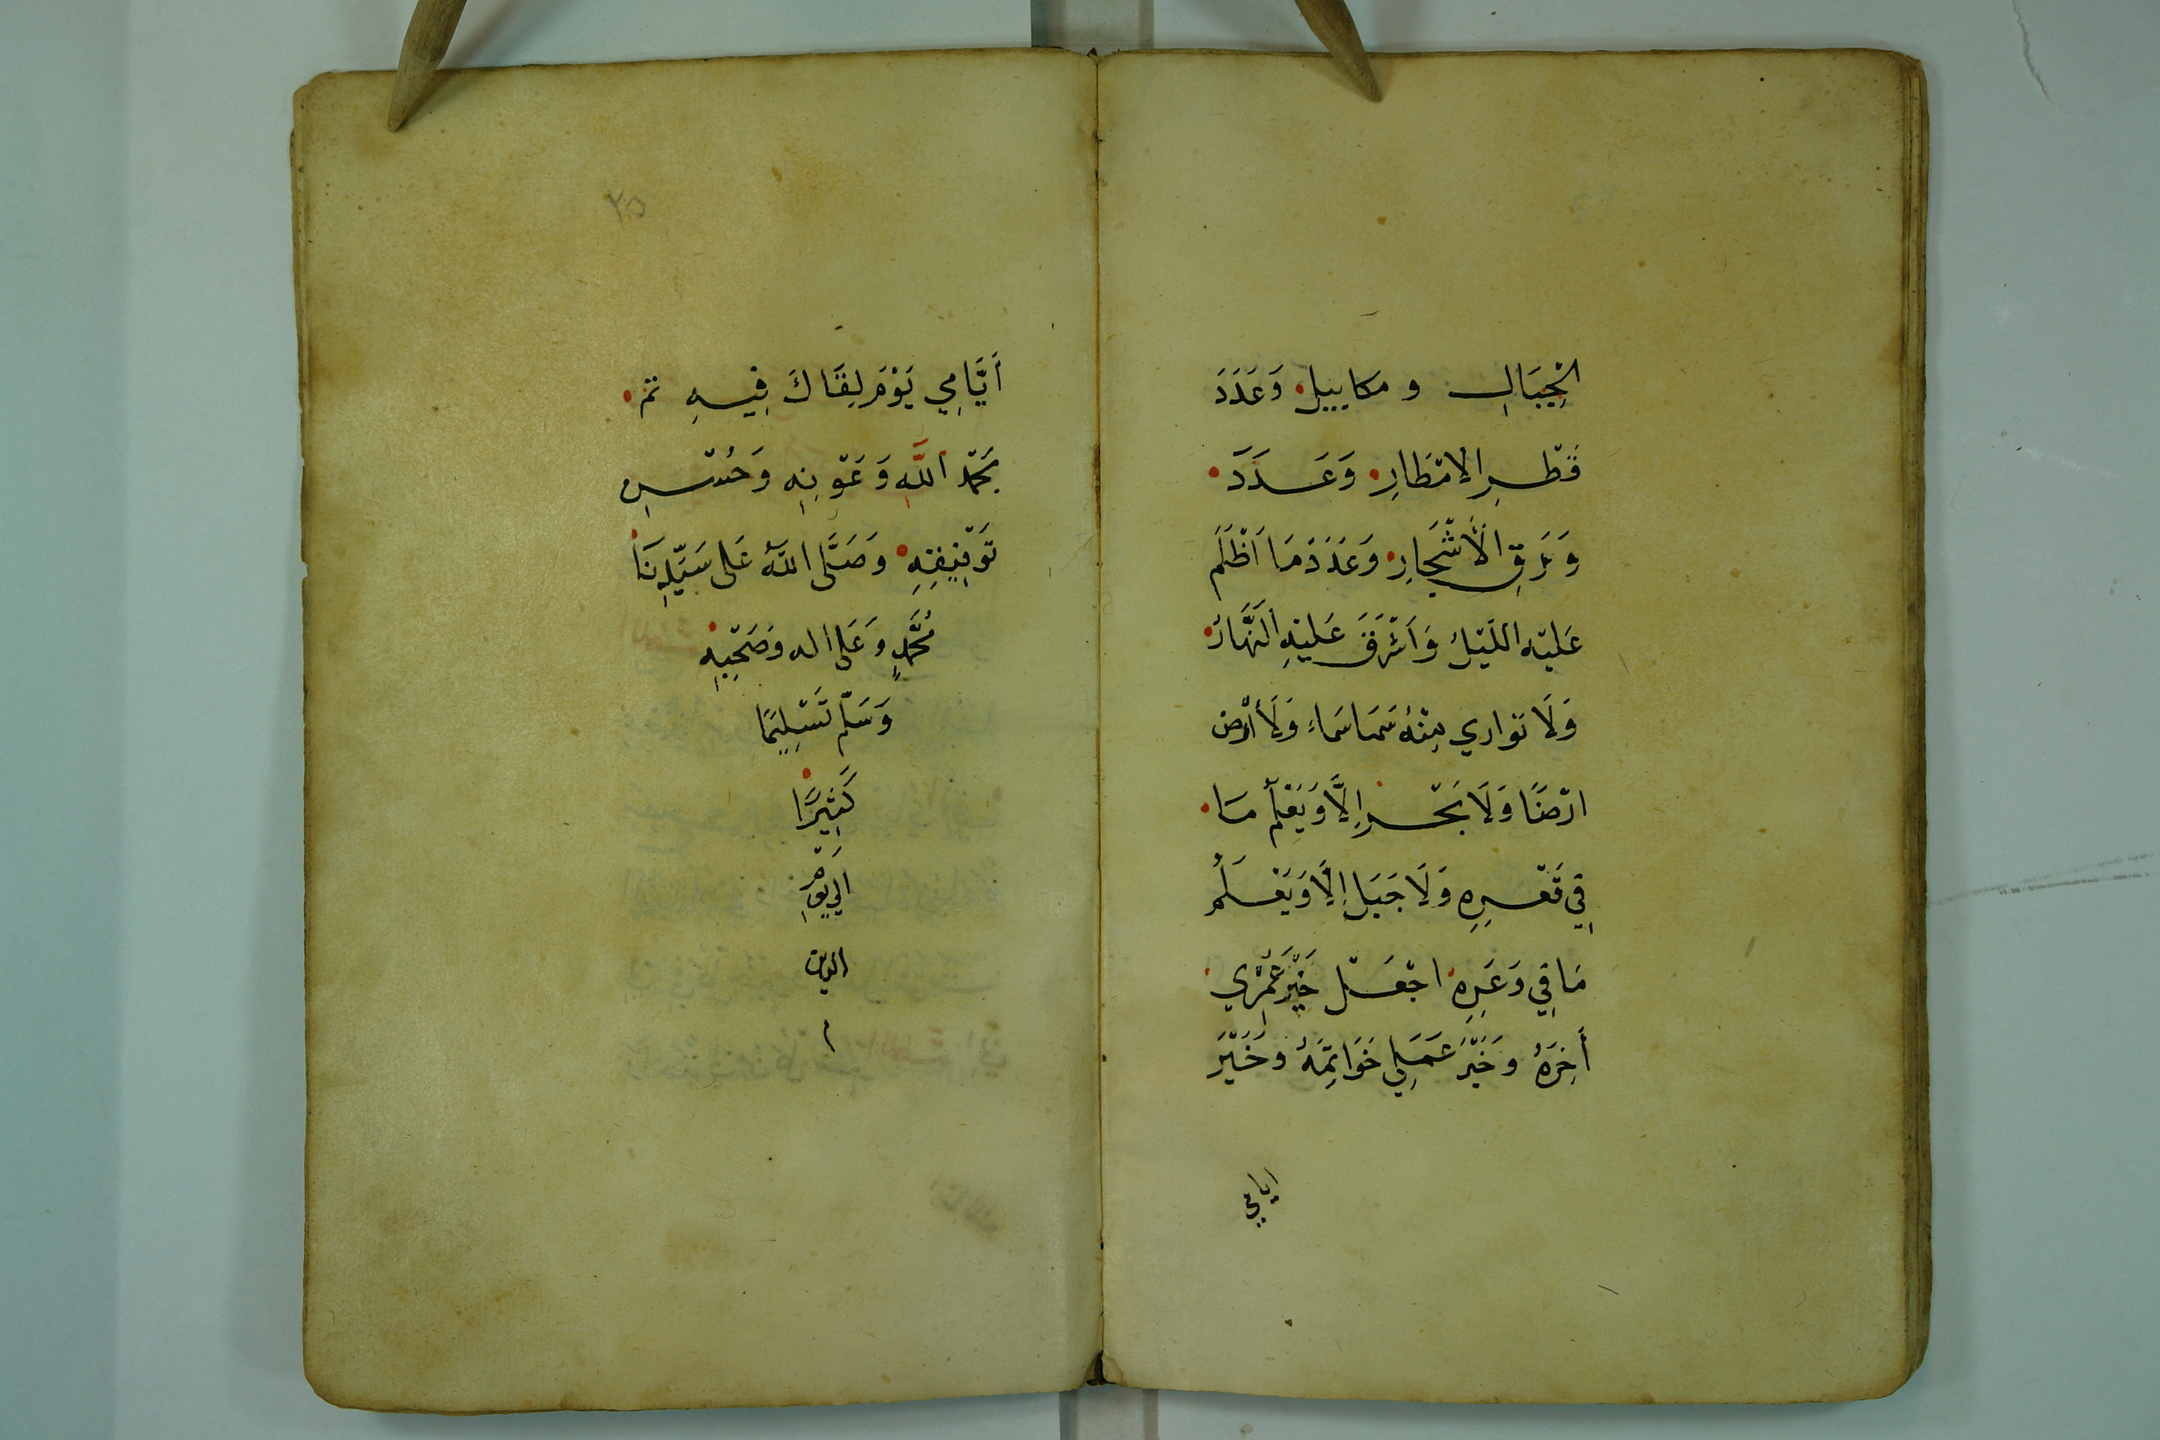 الْجِبَالِ و مكاييل وَعَدَدَ
قَطْرِ الامْطَارِ وَعَدَدَ
وَرَقِ الْأَشْجَارِ وَعَدَدَ مَا اَظْلَمَ
عَلَيْهِ اللَّيْلُ وَاَشْرَقَ عَلَيْهِ النَّهَارُ
وَلَا تواري مِنْهُ سَمَا سَمَاءِ وَلَا أَرْض
ارْضًا وَلَا بَحْر اِلَّا وَيَعْلَمُ مَا
فِي قَعْرِهِ وَلَا جَبَل اِلَّا وَيَعْلَمُ
مَا فِي وَعَرِهِ اجْعَلْ خَيْرَ عُمْرِي
أَخِرَهُ وخَيْرَ عَمَلِي خَوَاتِمَهُ وخَيْرَ
ايامي
٢٥
أَيَّامِي يَوْمَ لِقَاكَ فِيهِ تم
بحَمْدِ اللَّهِ وَعَوْنِهِ وَحُسْنِ
تَوْفِيقِهِ وَصَلَّى اللَّهُ عَلى سَيِّدِنَا
مُحَمَّدٍ وَعَلى اله وَصَحْبِهِ
وَسَلّم تَسْلِيمًا
كَثِيرًا
الي يَوْمِ
الدين
م